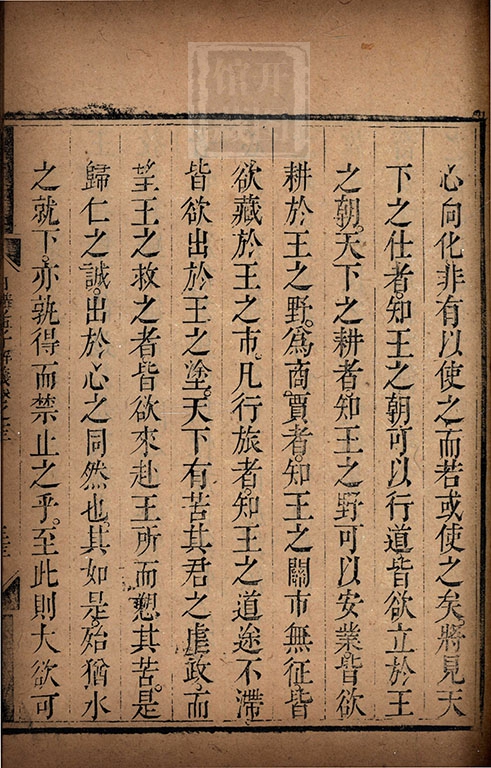 心向化非有以使之而若或使之矣。將見天
下之仕者。知王之朝可以行道皆欲立於王
之朝。天下之耕者。知王之野可以安業皆欲
耕於王之野。爲商賈者。知王之關市無征皆
欲藏於王之市。凡行旅者。知王之道途不滯
皆欲出於王之塗。天下有苦其君之虐政。而
望王之救之者皆欲來赴王所而愬其苦。是
歸仁之誠。出於心之同然也。其如是。殆猶水
之就下。亦孰得而禁止之乎。至此則大欲可